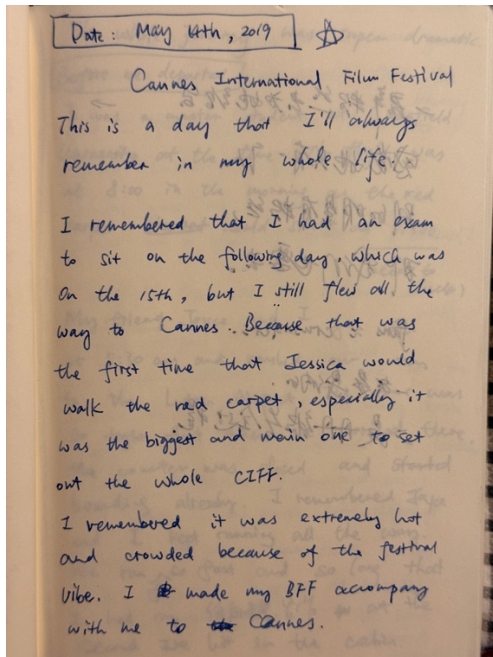 Date: May 14th, 2019
Cannes International Film Festival
This is a day that I'll always
remember in my whole life.
I remembered that I had an exam
to sit on the following day, which was
on the 15th, but I still flew all the
way to Cannes. Because that was
the first time that Jessica would
walk the rad carpet, especially it
was the biggest and main one to set
out the whole CIFF.
I remembered it was extremely hot
and crowded because of the festival
vibe. I made my BFF accompany
with me to Cannes.